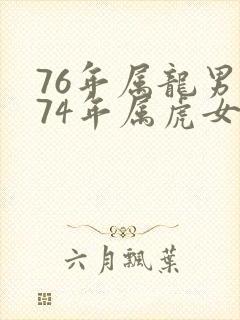 76年属龍男
74年属虎女
六月飄葉